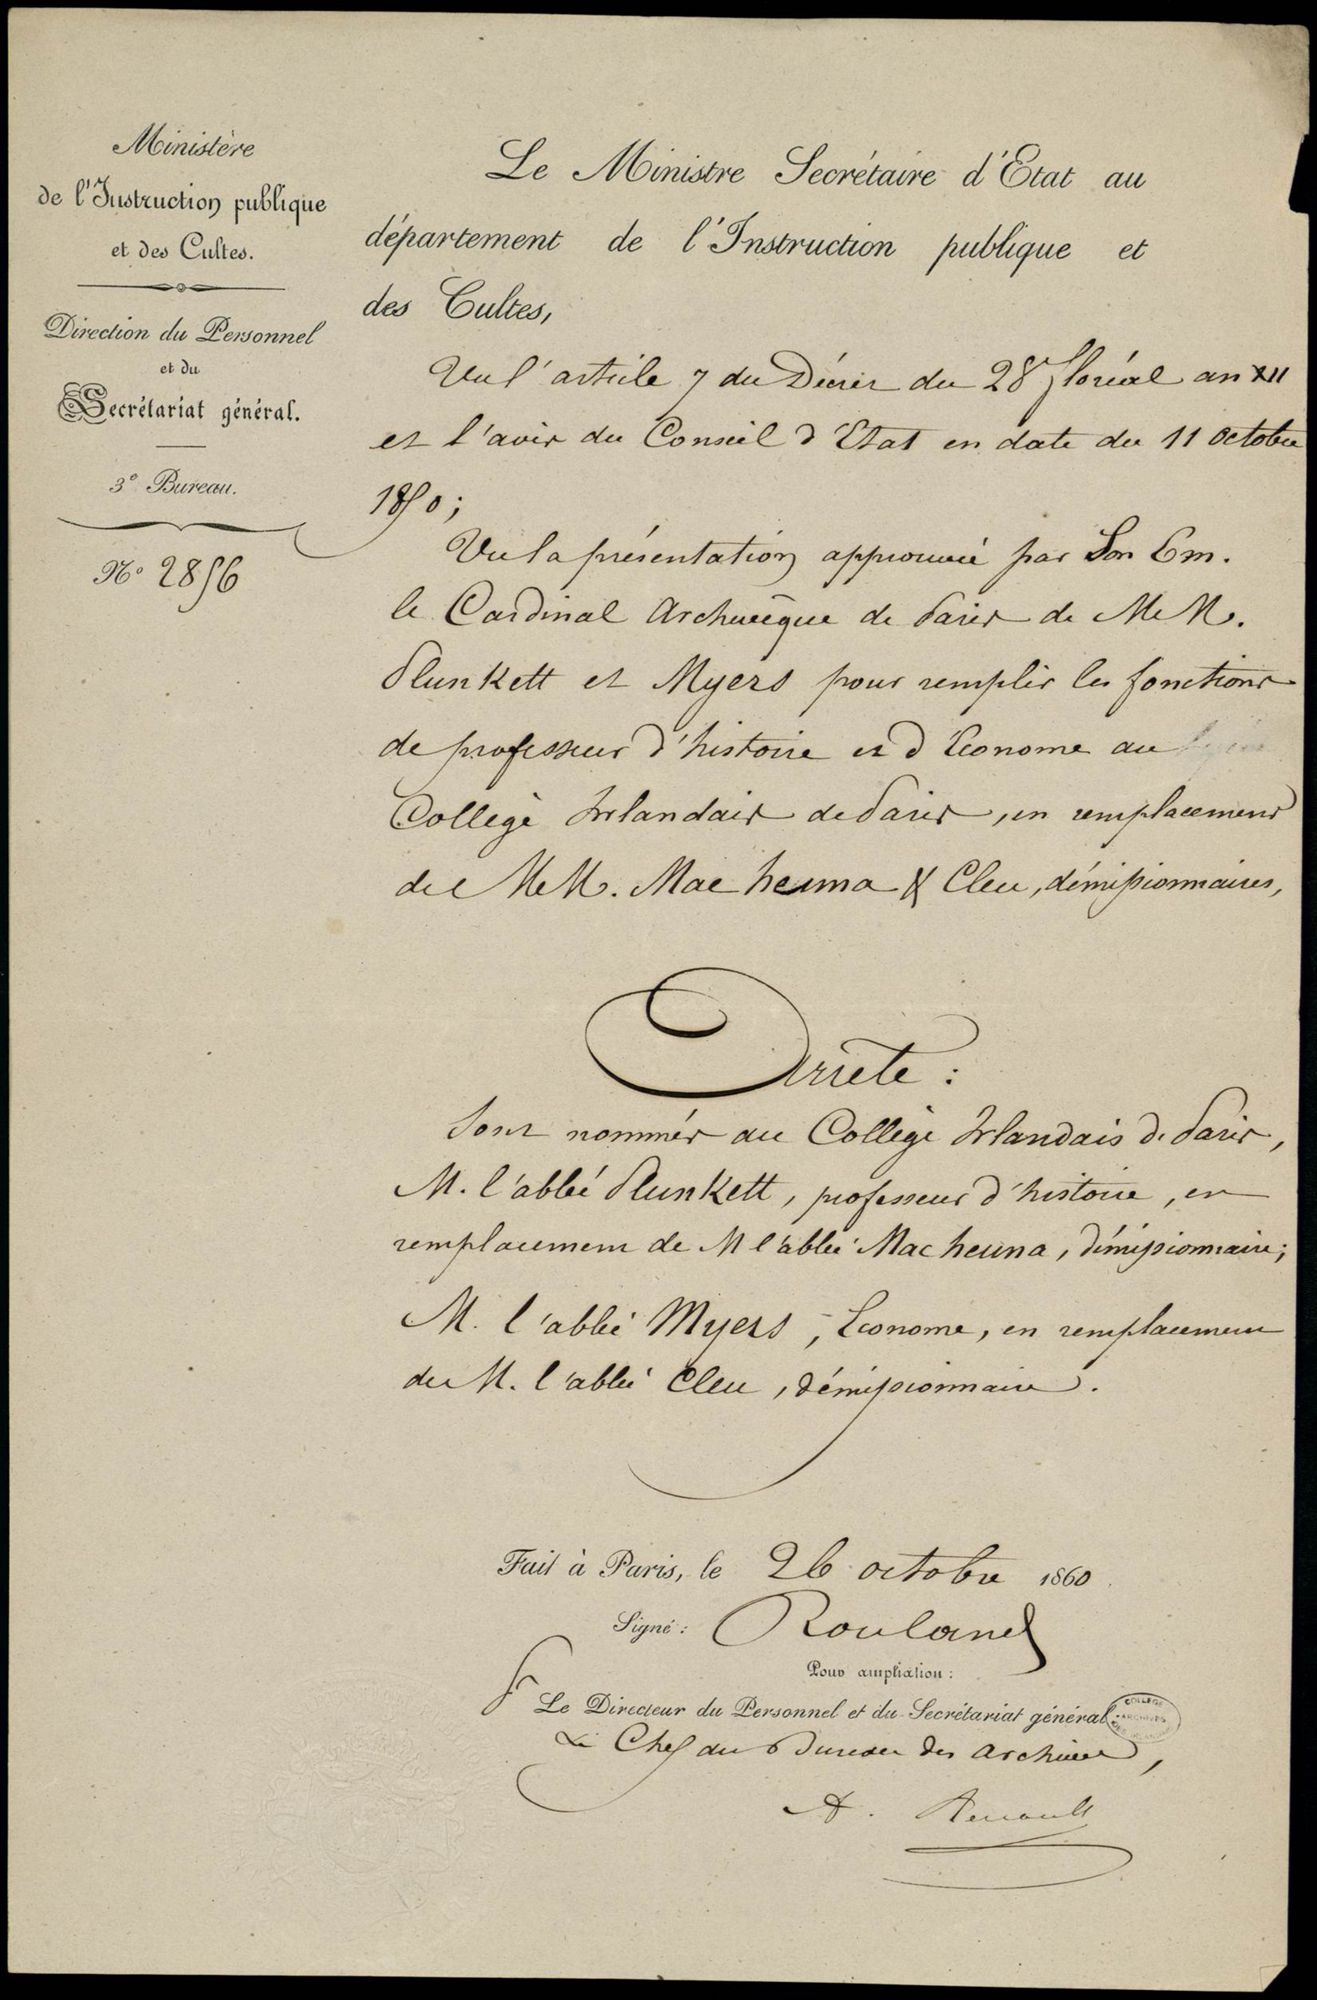 Ministère
de l'Instruction publique
et des Cultes.
Direction du Personnel
et du
Secrétariat général.
3e Bureau.
No 2856
Le Ministre Secrétaire d'Etat au
département de l'Instruction publique et
des Cultes,
Vu l'article 7 du Décret du 28 floréal an XII
et l'avis du Conseil d'Etat en date du 11 octobre
1850;
Vu la présentation approuvée par Son Em.
le Cardinal Archevêque de Paris de MM.
Plunkett et Myers pour remplir les fonctions
de professeur d'histoire et d'Econome au
Collège Irlandais de Paris, en remplacement
de MM. Mac heuna & Cleu, démissionnaires,
Arrete :
Sont nommés au Collège Irlandais de Paris,
M. l'abbé Plunkett, professeur d'histoire, en
remplacement de M l'abbé Mac heuna, démissionnaire;
M. l'abbé Myers, Econome, en remplacement
de M. l'abbé Cleu, démissionnaire.
Fait à Paris, le 26 octobre 1860.
Signé : Rouland
Pour ampliation :
Le Directeur du Personnel et du Secrétariat général
Le Chef du Bureau des Archives,
A. Renault
COLLEGE
ARCHIVES